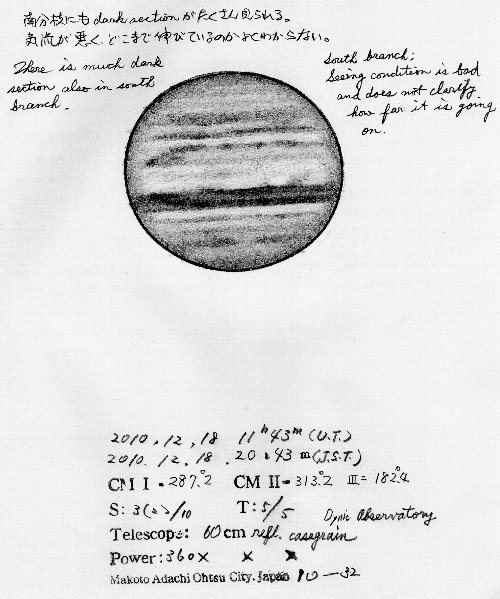 南分枝にも dark section がたくさん見られる。
気流が悪く、どこまで伸びているのかよくわからない。
There is much dark
section also in south
branch.
South branch;
Seeing condition is bad
and does not clarify
how far it is going
on.
2010. 12. 18 11h 43m (U.T.)
2010. 12. 18. 20h 43m (J.S.T.)
CM I = 287.°2 CM II = 313.°2 III = 182.°4
S: 3(2)/10 T: 5/5 Dynic Observatory
Telescope: 60 cm refl. cassegrain
Power: 360× × ×
Makoto Adachi Ohtsu City. Japan 10-32